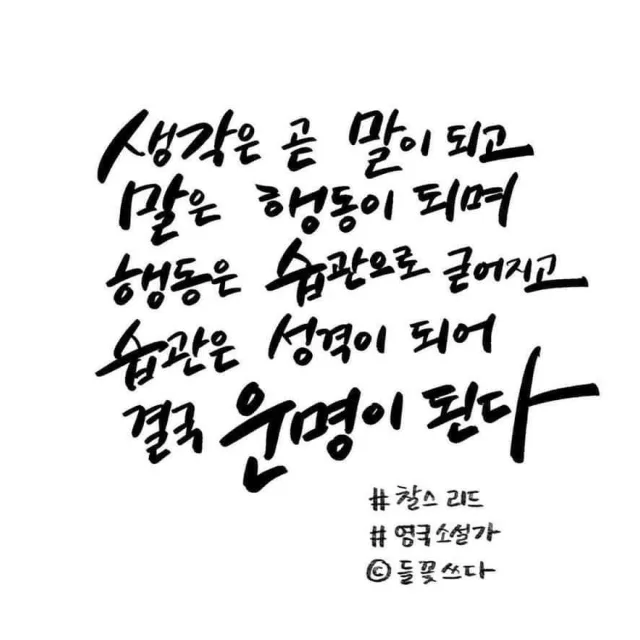 생각은 곧 말이 되고
말은 행동이 되며
행동은 습관으로 굳어지고
습관은 성격이 되어
결국 운명이 된다
# 찰스 리드
# 영국소설가
© 들꽃쓰다